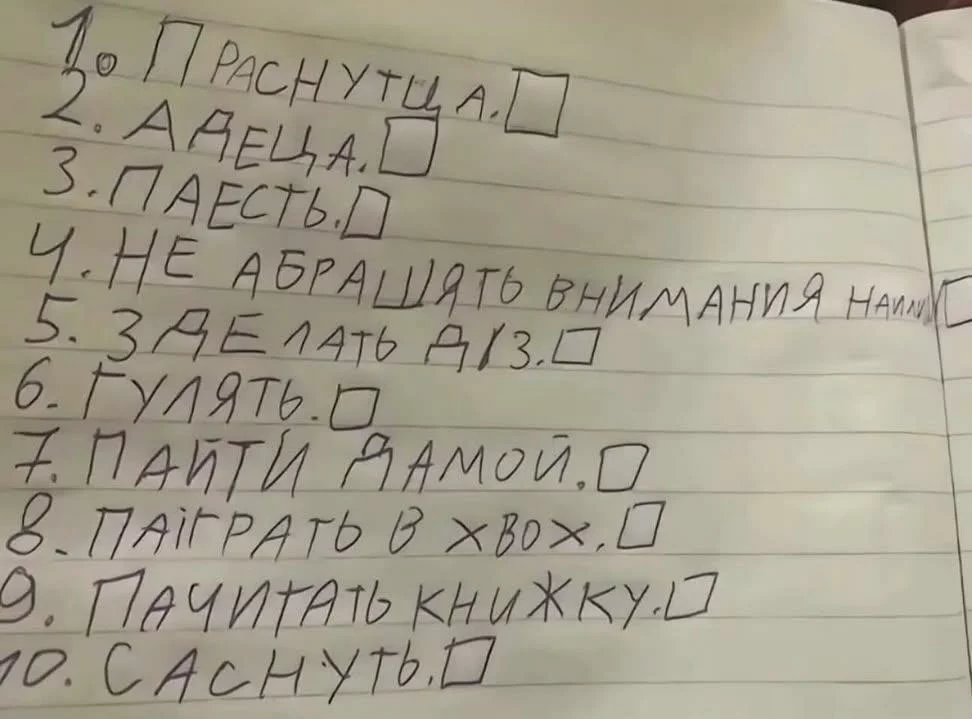 1. ПРАСНУТЦА.
2. АДЕЦА.
3. ПАЕСТЬ.
4. НЕ АБРАШЯТЬ ВНИМАНИЯ
5. ЗДЕЛАТЬ Д/З.
6. ГУЛЯТЬ.
7. ПАЙТИ ДАМОЙ.
8. ПАІГРАТЬ В ХВОХ.
9. ПАЧИТАТЬ КНИЖКУ.
10. САСНУТЬ.